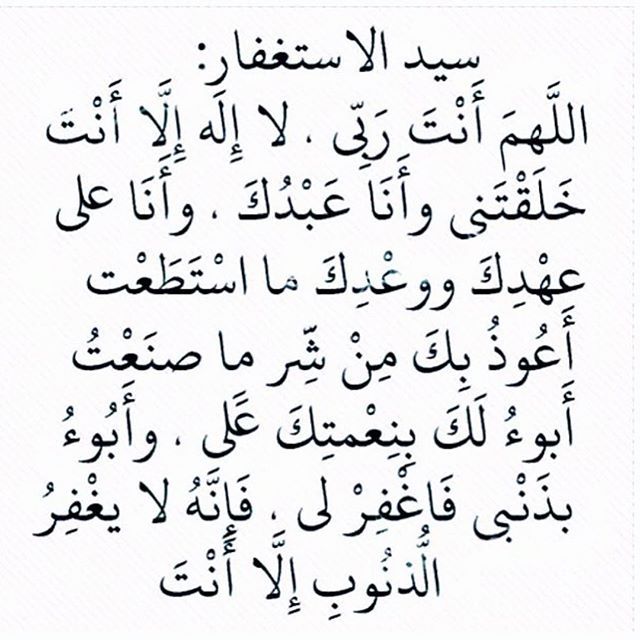 سيد الاستغفار:
اللَّهمَ أَنْتَ رَبِّى ، لا إِلَه إِلَّا أَنْتَ
خَلَقْتَنى وأَنَا عَبْدُكَ ، وأَنَا على
عهْدِكَ ووعْدِكَ ما اسْتَطَعْت
أَعُوذُ بِكَ مِنْ شِّر ما صنَعْتُ
أَبوءُ لَكَ بِنِعْمتِكَ عَلَى ، وأَبُوءُ
بذَنْبى فَاغْفِرْ لى ، فَإِنَّهُ لا يغْفِرُ
الُّذنُوبِ إِلَّا أَنْتَ